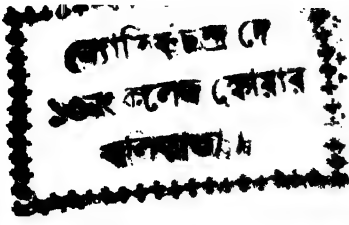 জ্যোতিষচন্দ্র দে
১৩নং কলেজ স্কোয়ার
কলিকাতা।